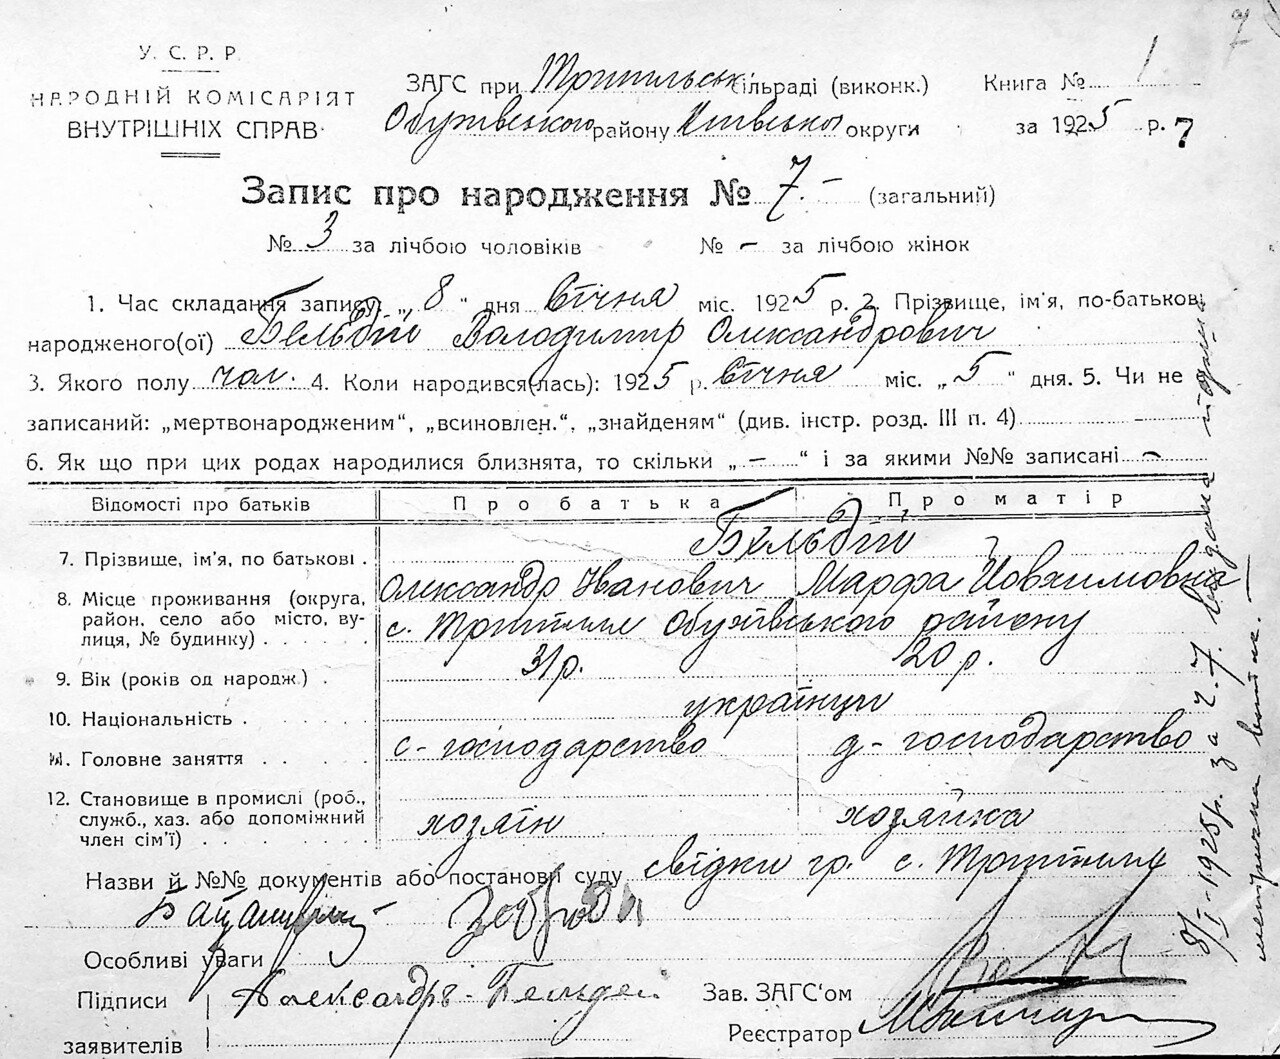 7
У. С. Р. Р.
НАРОДНІЙ КОМІСАРІЯТ
ВНУТРІШНІХ СПРАВ
ЗАГС при Трипільськ сільраді (виконк.)
Обухівського району Київської округи
Книга № 1
за 1925 р. 7
Запис про народження № 7. – (загальний)
№ 3 за лічбою чоловіків № – за лічбою жінок
1. Час складання запису: „ 8 “ дня Січня міс. 1925 р. 2. Прізвище, ім'я, по-батькові
народженого(ої) Бельдій Володимир Олександрович
3. Якого полу чол. 4. Коли народився(лась): 1925 р. Січня міс. „ 5 “ дня. 5. Чи не
записаний: „мертвонародженим“, „всиновлен.“, „знайденям“ (див. інстр. розд. III п. 4) –
6. Як що при цих родах народилися близнята, то скільки „ – “ і за якими №№ записані –
Відомості про батьків Про батька Про матір
7. Прізвище, ім'я, по батькові . Бельдій
Олександр Іванович Марфа Йовхимовна
8. Місце проживання (округа,
район, село або місто, ву-
лиця, № будинку) . . . . . с. Трипілля Обухівського району
9. Вік (років од народж.) . 31 р. 20 р.
10. Національність . . . . . . українци
11. Головне заняття . . . . . с-господарство д-господарство
12. Становище в промислі (роб.,
служб., хаз. або допоміжний
член сім'ї) . . . . . . . хозяїн хозяйка
Назви й №№ документів або постанови суду свідки гр. с. Трипілля
Особливі уваги
Підписи
заявителів
Александръ Бельдей
Зав. ЗАГС'ом
Реєстратор
8/I-1925р. за ч. 7. видана
метрична витяг. –